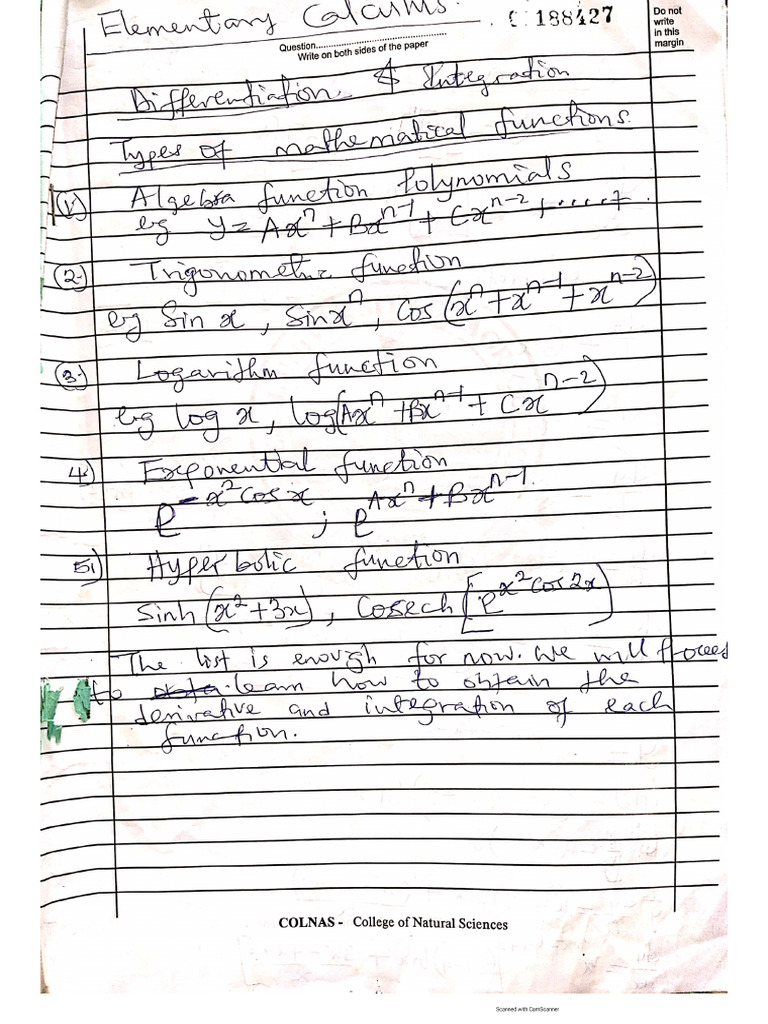 Elementary Calculus.
C 188427
Do not
write
in this
margin
Question..........................................
Write on both sides of the paper
Differentiation & Integration
Types of mathematical functions.
(1.) Algebra function Polynomials
eg y = Ax^n + Bx^{n-1} + Cx^{n-2} + ..... + .
(2.) Trigonometric function
eg Sin x, Sin x^n, Cos(x^n + x^{n-1} + x^{n-2})
(3.) Logarithm function
eg log x, log(Ax^n + Bx^{n-1} + Cx^{n-2})
4.) Exponential function
e^{-x^2 Cos x} ; e^{Ax^n + Bx^{n-1}}.
5.) Hyperbolic function
Sinh(x^2+3x), Cosech[e^{x^2 cos 2x}]
The list is enough for now. We will proceed
to learn how to obtain the
derivative and integration of each
function.
COLNAS - College of Natural Sciences
Scanned with CamScanner